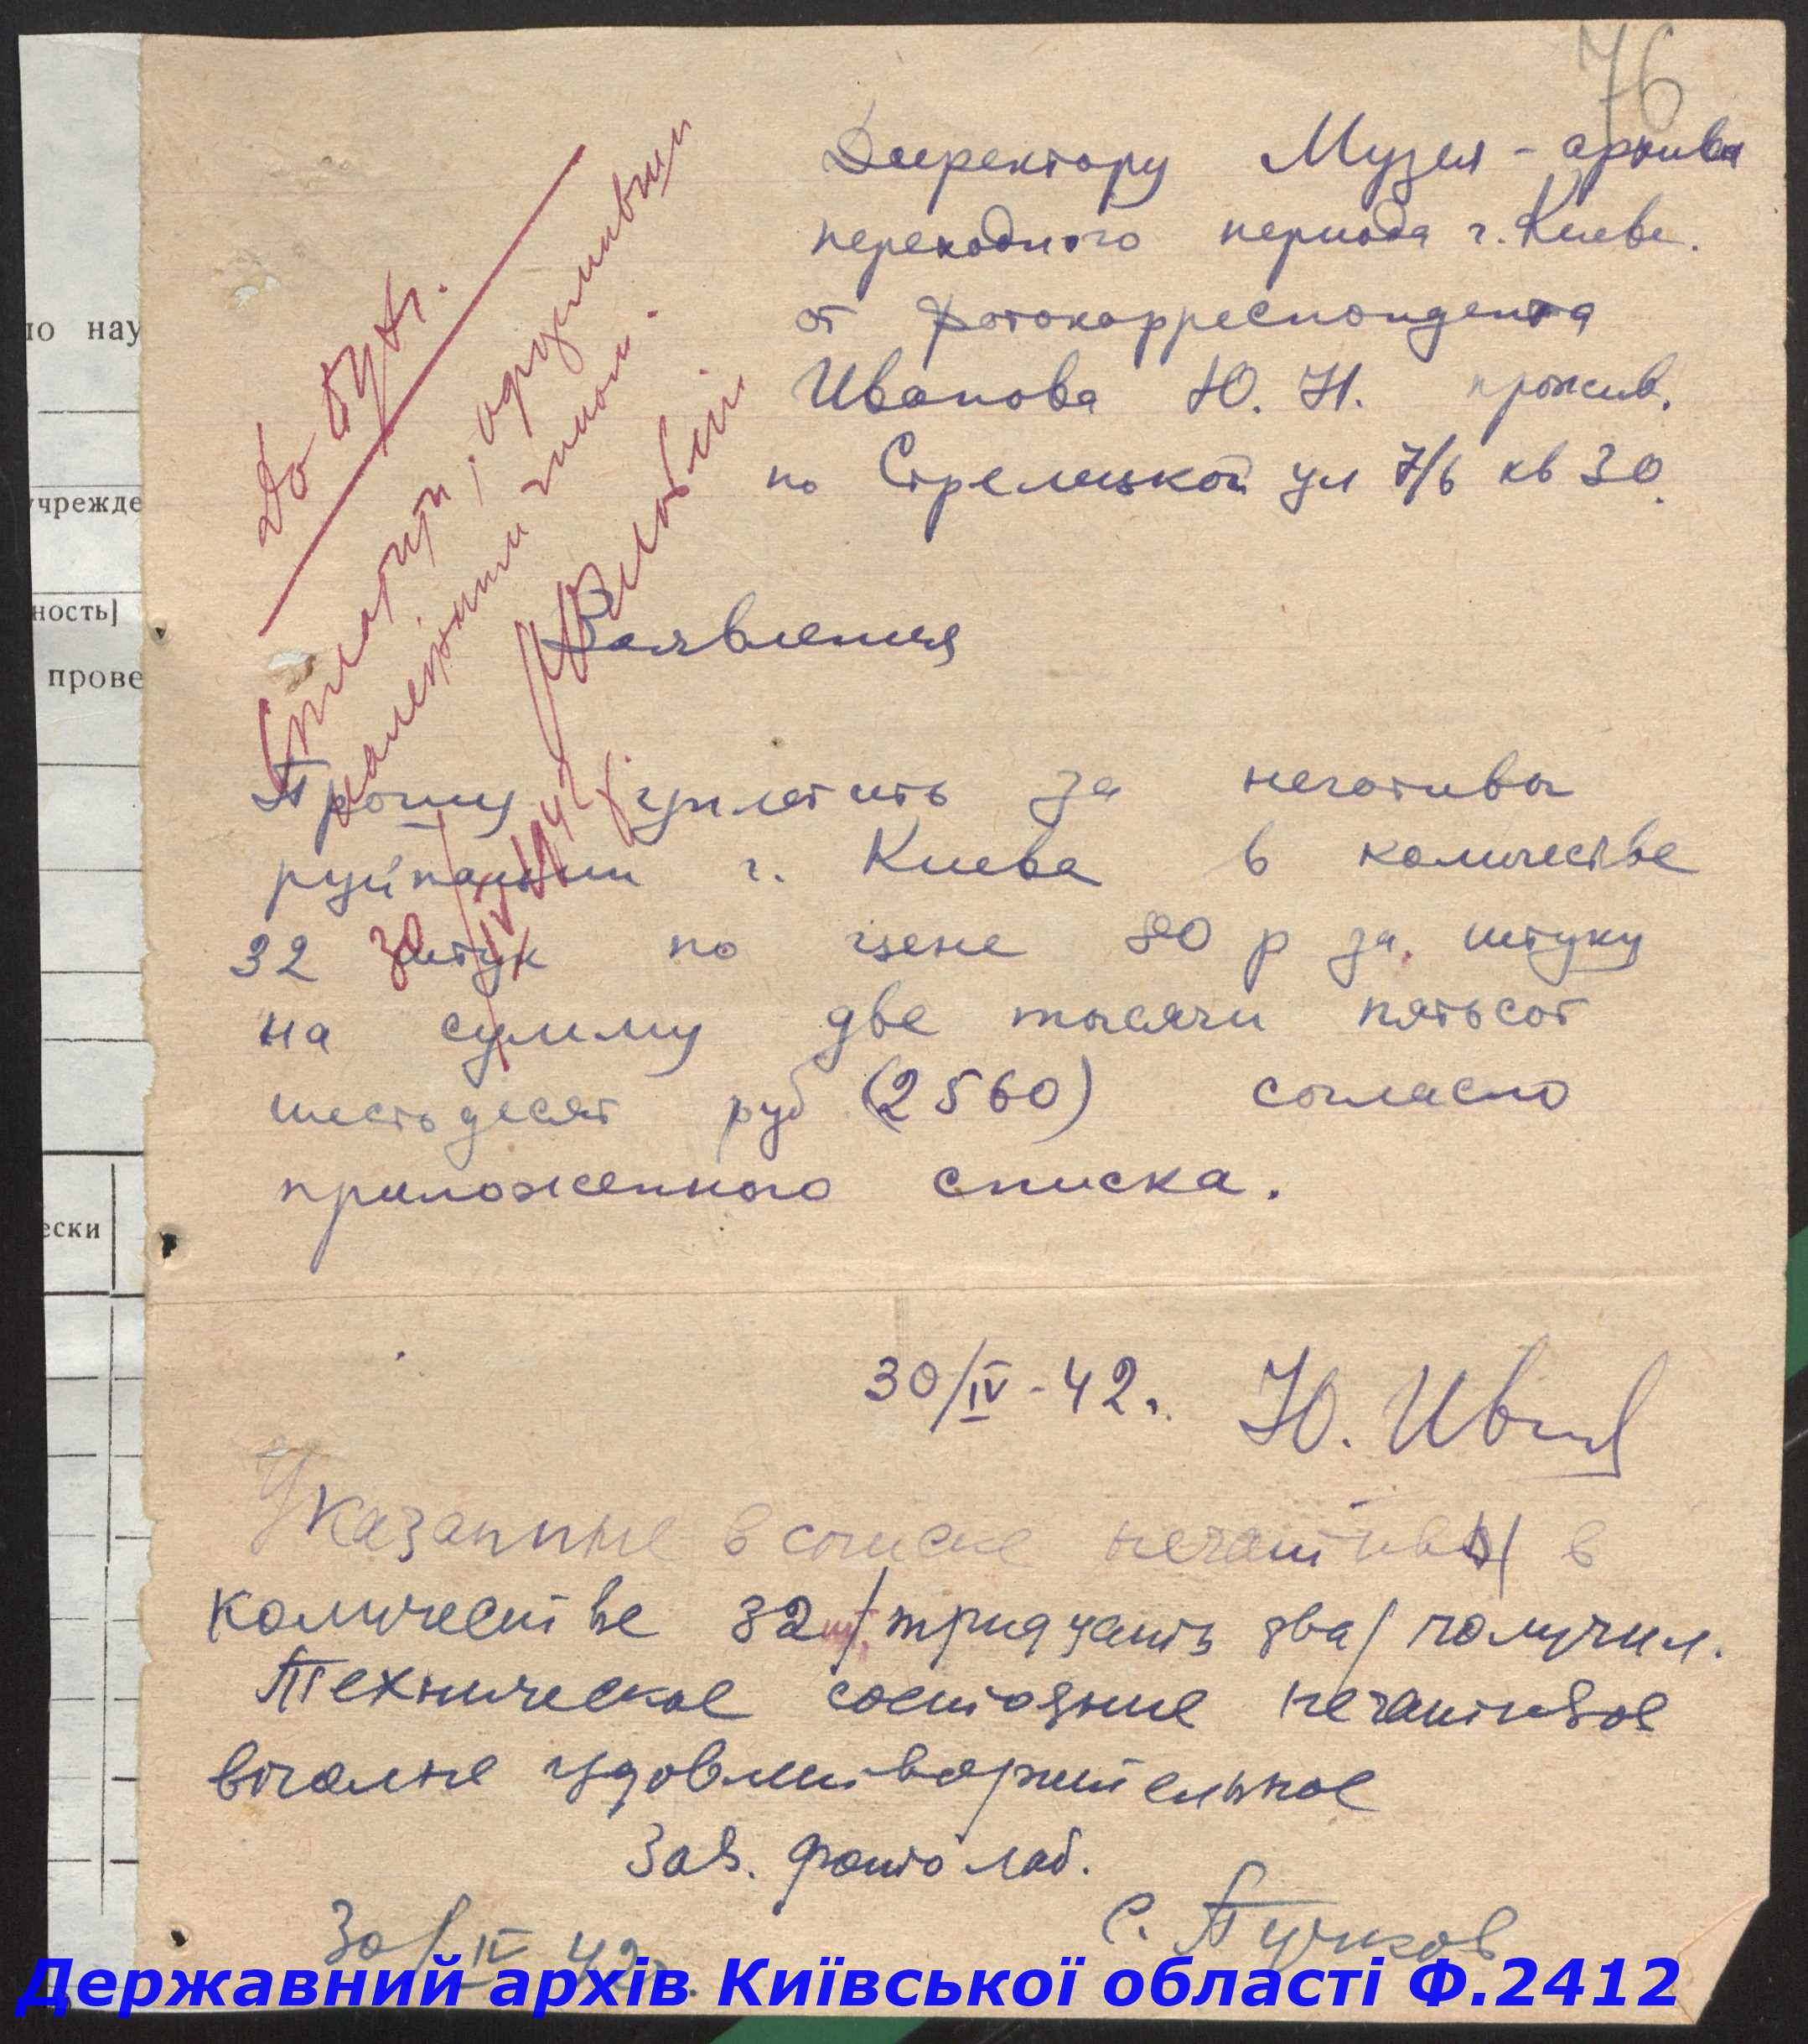 76
Директору Музея-архива
переходного периода г. Киева.
от фотокорреспондента
Иванова Ю. Н. прожив.
по Стрелецкой ул 7/6 кв 30.
До бухг.
Сплатити,
належним чином.
30/IV 1942 р.
Заявления
Прошу уплатить за негативы
г. Киева в количестве
32 штук по цене 80 р за штуку
на сумму две тысячи пятьсот
шестьдесят руб (2560) согласно
приложенного списка.
30/IV-42г. Ю. Иванов
Указанные в списке негативы в
количестве 32 шт. /тридцать два/ получил.
Техническое состояние негативов
вполне удовлетворительное
Зав. фото лаб.
30/IV 42г. С. Пучков
по нау
учрежде
ность]
прове
ески
Державний архів Київської області Ф.2412